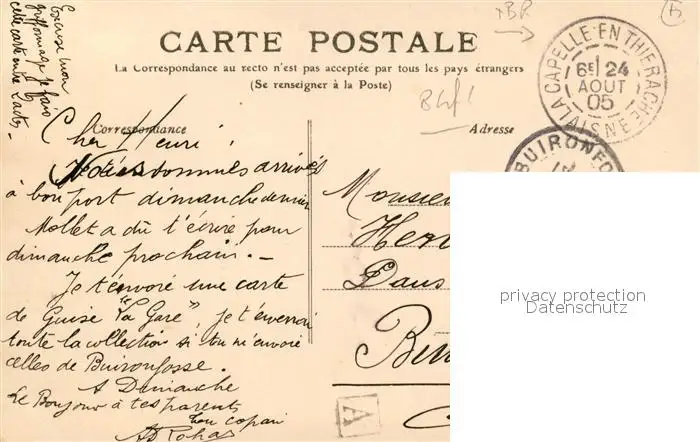 Excuse mon
griffonnage je fais
cette carte entre 2 actes
CARTE POSTALE
La Correspondance au recto n'est pas acceptée par tous les pays étrangers
(Se renseigner à la Poste)
Correspondance
Adresse
LA CAPELLE-EN-THIERACHE
6E 24
AOUT
05
AISNE
BUIRONFO
Cher Henri !
Nous sommes arrivés
à bon port dimanche dernier
Mollet a dû t'écrire pour
dimanche prochain. –
Je t'envoie une carte
de Guise "La Gare", je t'enverrai
toute la collection si tu m'envoie
celles de Buironfosse.
A Dimanche
Le Bonjour à tes parents
ton copain
Monsieur
Henr
Dans
A
privacy protection
Datenschutz